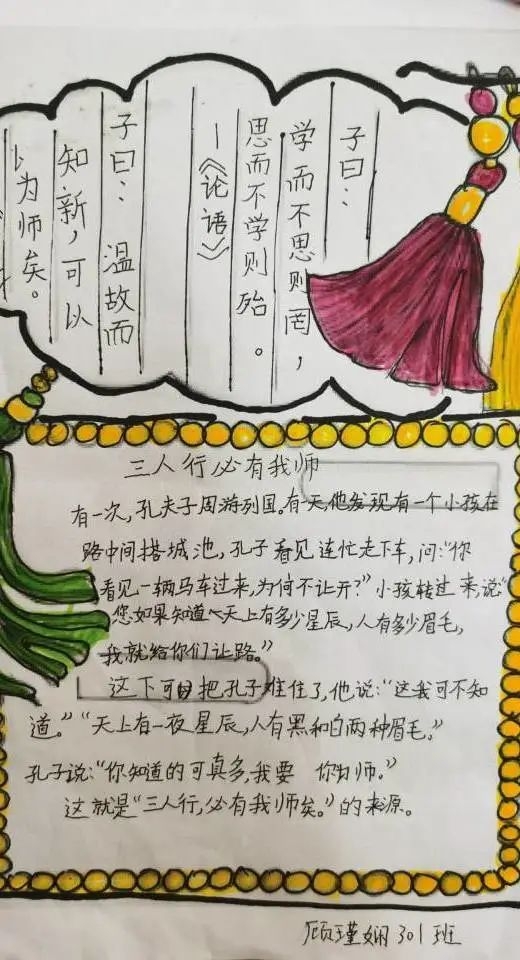 子曰：
学而不思则罔，
思而不学则殆。
—《论语》
子曰：温故而
知新，可以
为师矣。
三人行必有我师
有一次，孔夫子周游列国。有一天，他发现有一个小孩在
路中间搭城池，孔子看见连忙走下车，问：“你
看见一辆马车过来，为何不让开？”小孩转过来，说“
您如果知道天上有多少星辰，人有多少眉毛，
我就给你们让路。”
这下可把孔子难住了，他说：“这我可不知
道。”“天上有一夜星辰，人有黑和白两种眉毛。”
孔子说：“你知道的可真多，我要 你为师。”
这就是“三人行，必有我师矣。”的来源。
顾瑾娴301班